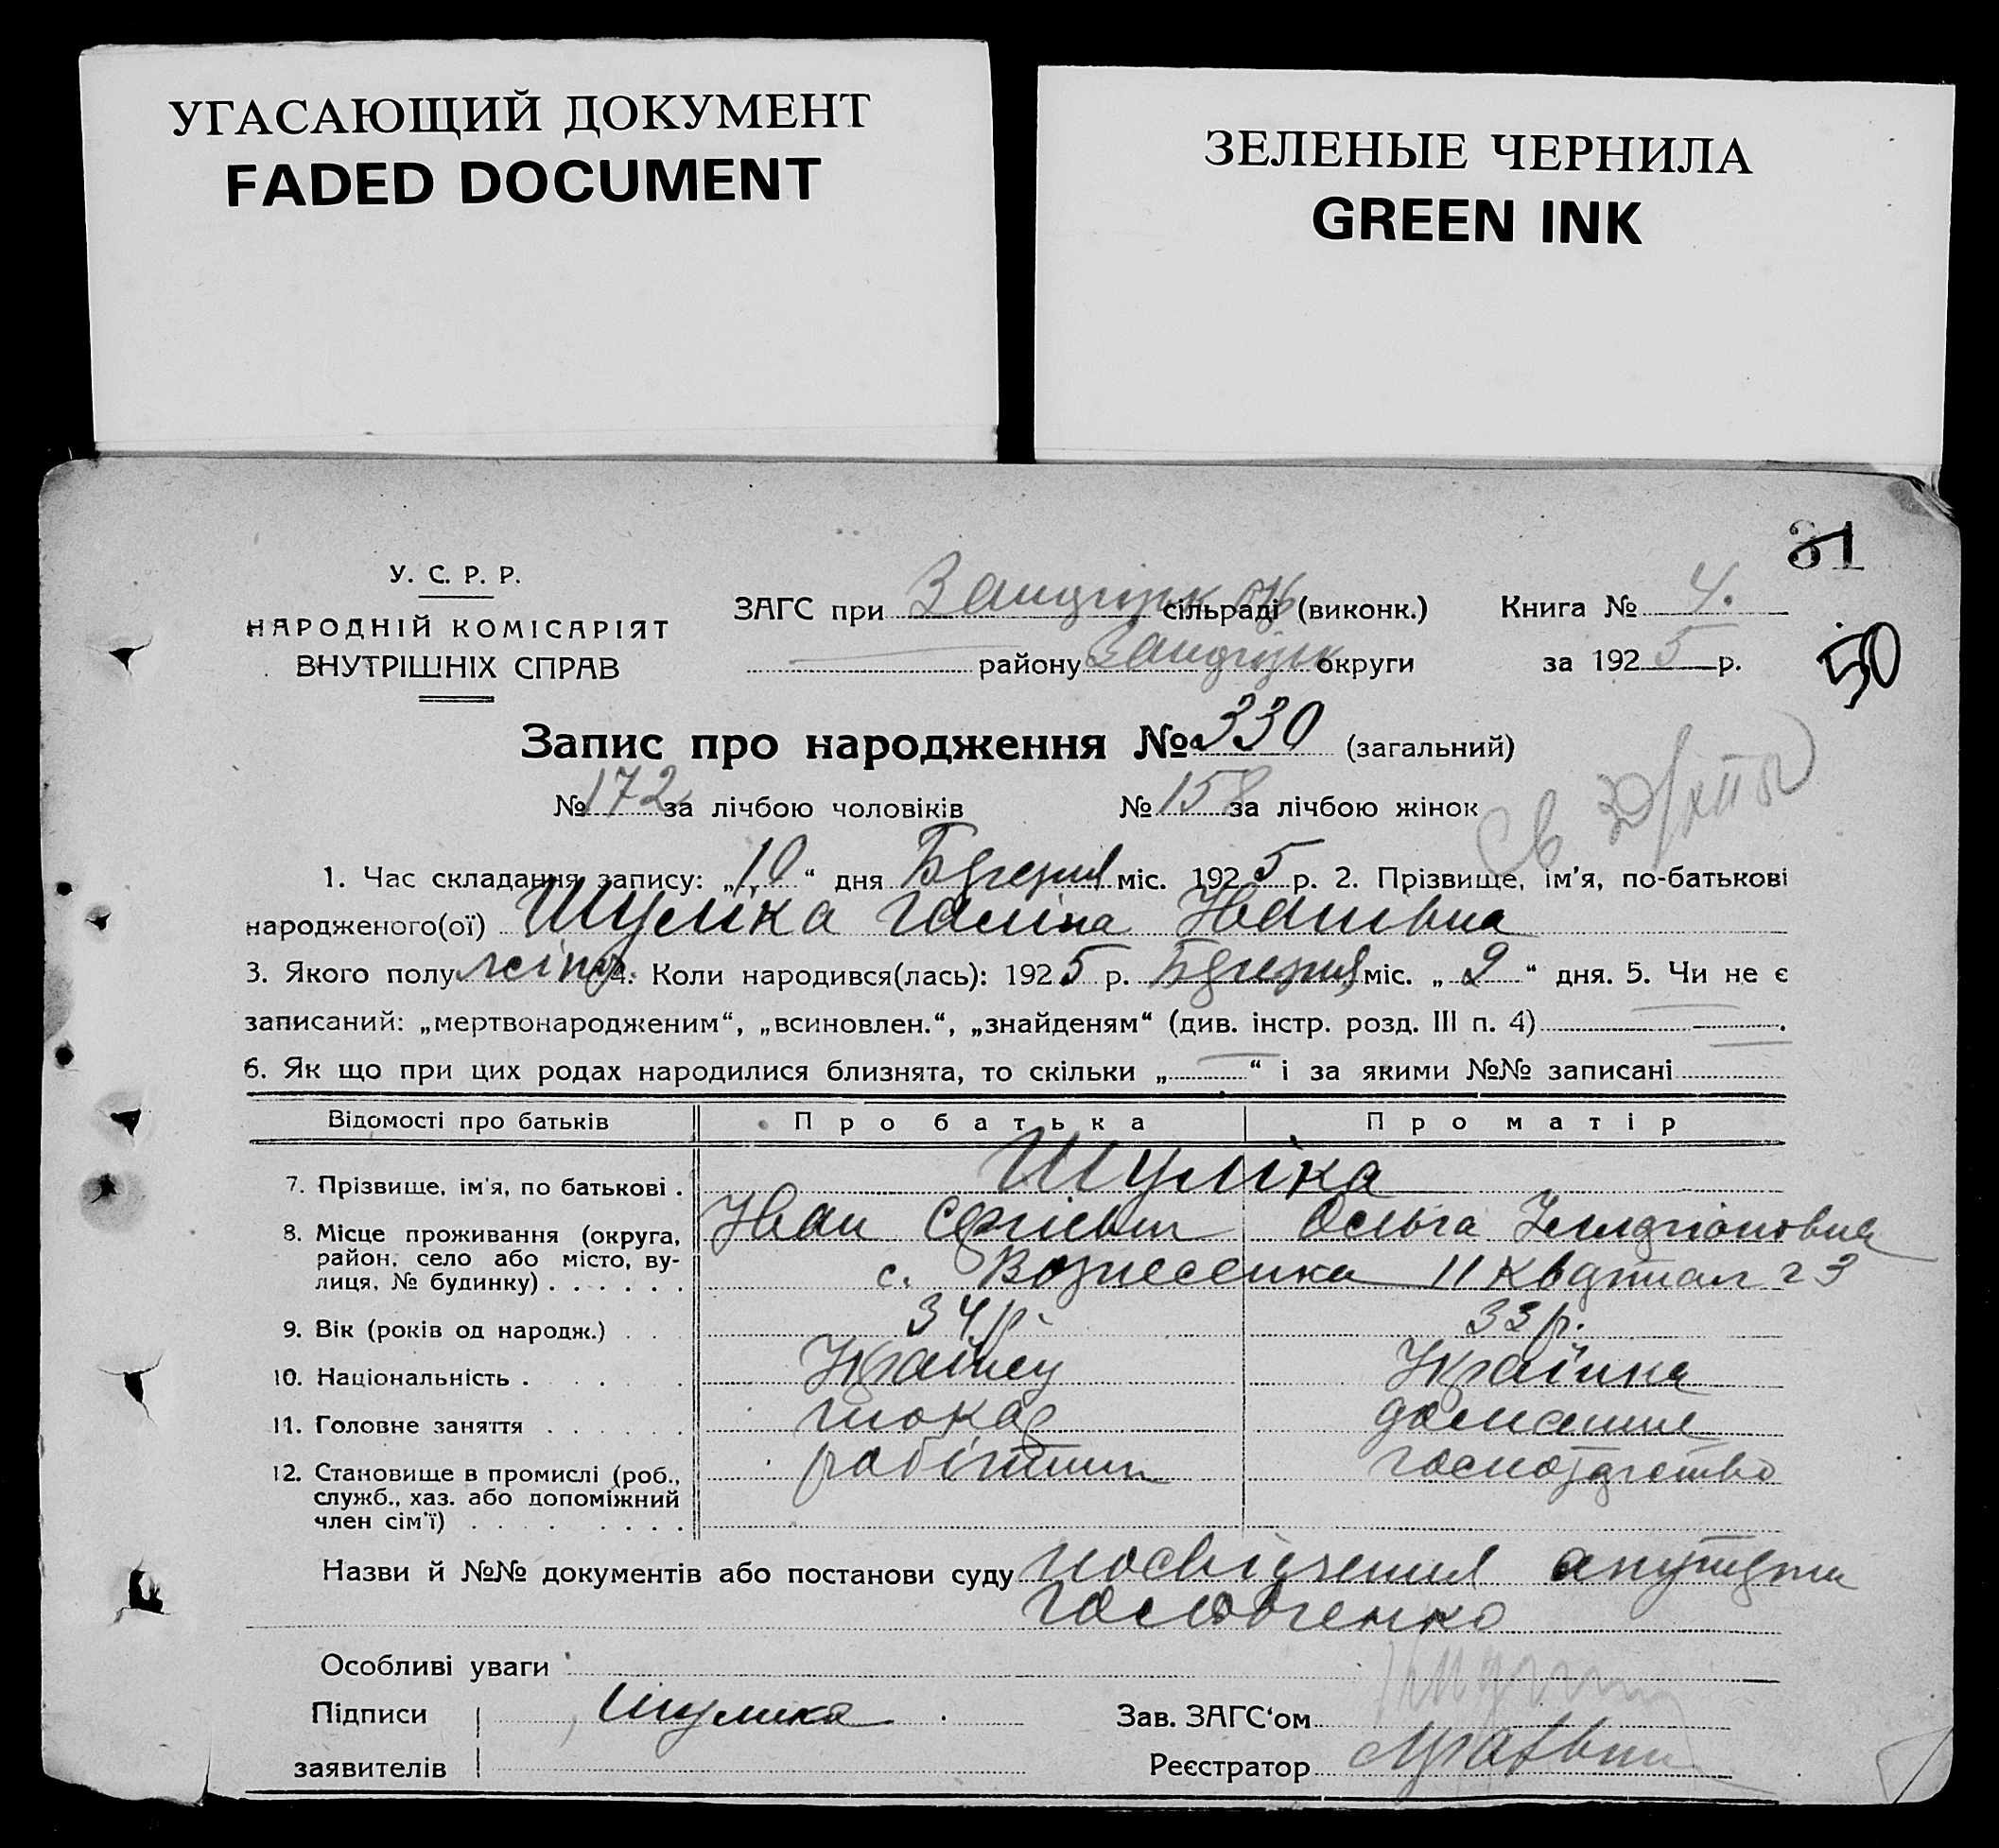 УГАСАЮЩИЙ ДОКУМЕНТ
FADED DOCUMENT
ЗЕЛЕНЫЕ ЧЕРНИЛА
GREEN INK
31
У. С. Р. Р.
НАРОДНІЙ КОМІСАРІЯТ
ВНУТРІШНІХ СПРАВ
ЗАГС при сільраді (виконк.) Книга № 4.
району округи за 1925 р.
50
Запис про народження № 330 (загальний)
№ 172 за лічбою чоловіків № 158 за лічбою жінок
1. Час складання запису: „10“ дня Березня міс. 1925 р. 2. Прізвище, ім’я, по-батькові
народженого(ої) Шуліка Галіна Іванівна
3. Якого полу жіноч. 4. Коли народився(лась): 1925 р. Березня міс. „2“ дня. 5. Чи не є
записаний: „мертвонародженим“, „всиновлен.“, „знайденям“ (див. інстр. розд. III п. 4)
6. Як що при цих родах народилися близнята, то скільки „ “ і за якими №№ записані
Відомості про батьків Про батька Про матір
7. Прізвище, ім’я, по батькові . Шуліка
8. Місце проживання (округа, Іван Сергієвич Ольга
район, село або місто, ву-
лиця, № будинку) . . . . . . с. Вознесенка 11 квартал 23
9. Вік (років од народж.) . . 34 р. 33 р.
10. Національність . . . . . Українец Українка
11. Головне заняття . . . . . . токар домашнє
12. Становище в промислі (роб., робітник господарство
служб., хаз. або допоміжний
член сім’ї) . . . . . . . .
Назви й №№ документів або постанови суду посвідчення акушерки
Головченко
Особливі уваги
Підписи Шулика Зав. ЗАГС‘ом
заявителів Реєстратор